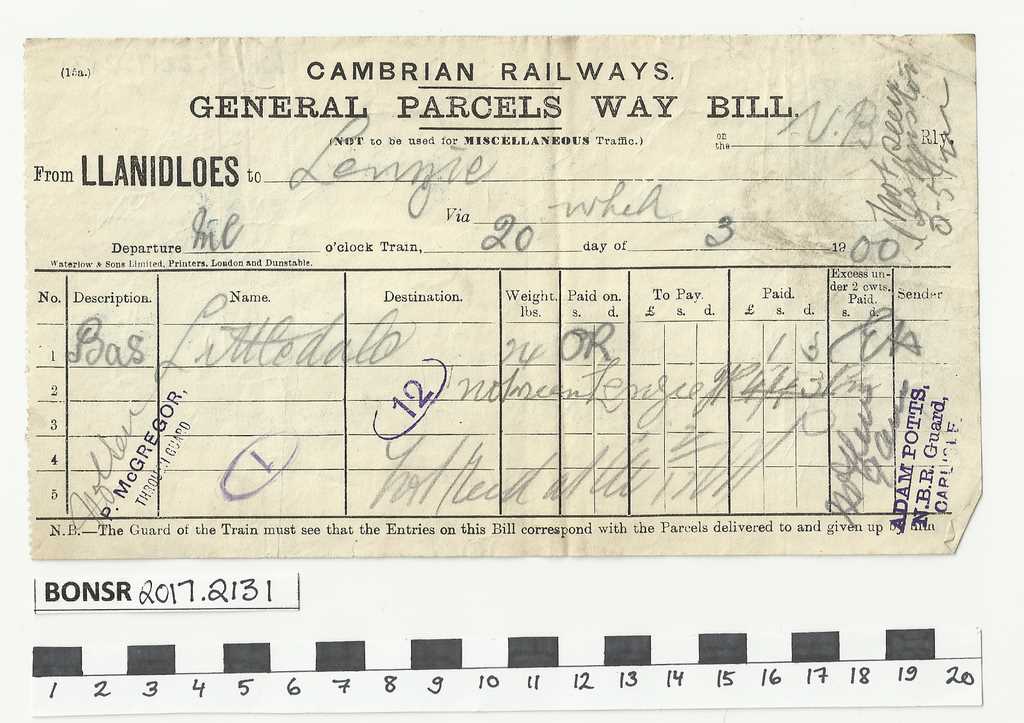 (15a.)
CAMBRIAN RAILWAYS.
GENERAL PARCELS WAY BILL.
(NOT to be used for MISCELLANEOUS Traffic.)
on the N.B Rly.
From LLANIDLOES to Lenzie
Via
Departure o'clock Train, 20 day of 3 1900
Waterlow & Sons Limited, Printers, London and Dunstable.
No. Description. Name. Destination. Weight. lbs. Paid on. s. d. To Pay. £ s. d. Paid. £ s. d. Excess under 2 cwts. Paid. s. d. Sender
1 Bas Littledale 24 OR 1 6
2 not seen Lenzie
12
3
4
1
5
P. McGREGOR,
THROUGH GUARD
ADAM POTTS,
N.B.R. Guard,
CARLISLE.
not seen
N.B.—The Guard of the Train must see that the Entries on this Bill correspond with the Parcels delivered to and given up by him
BONSR 2017.2131
1 2 3 4 5 6 7 8 9 10 11 12 13 14 15 16 17 18 19 20